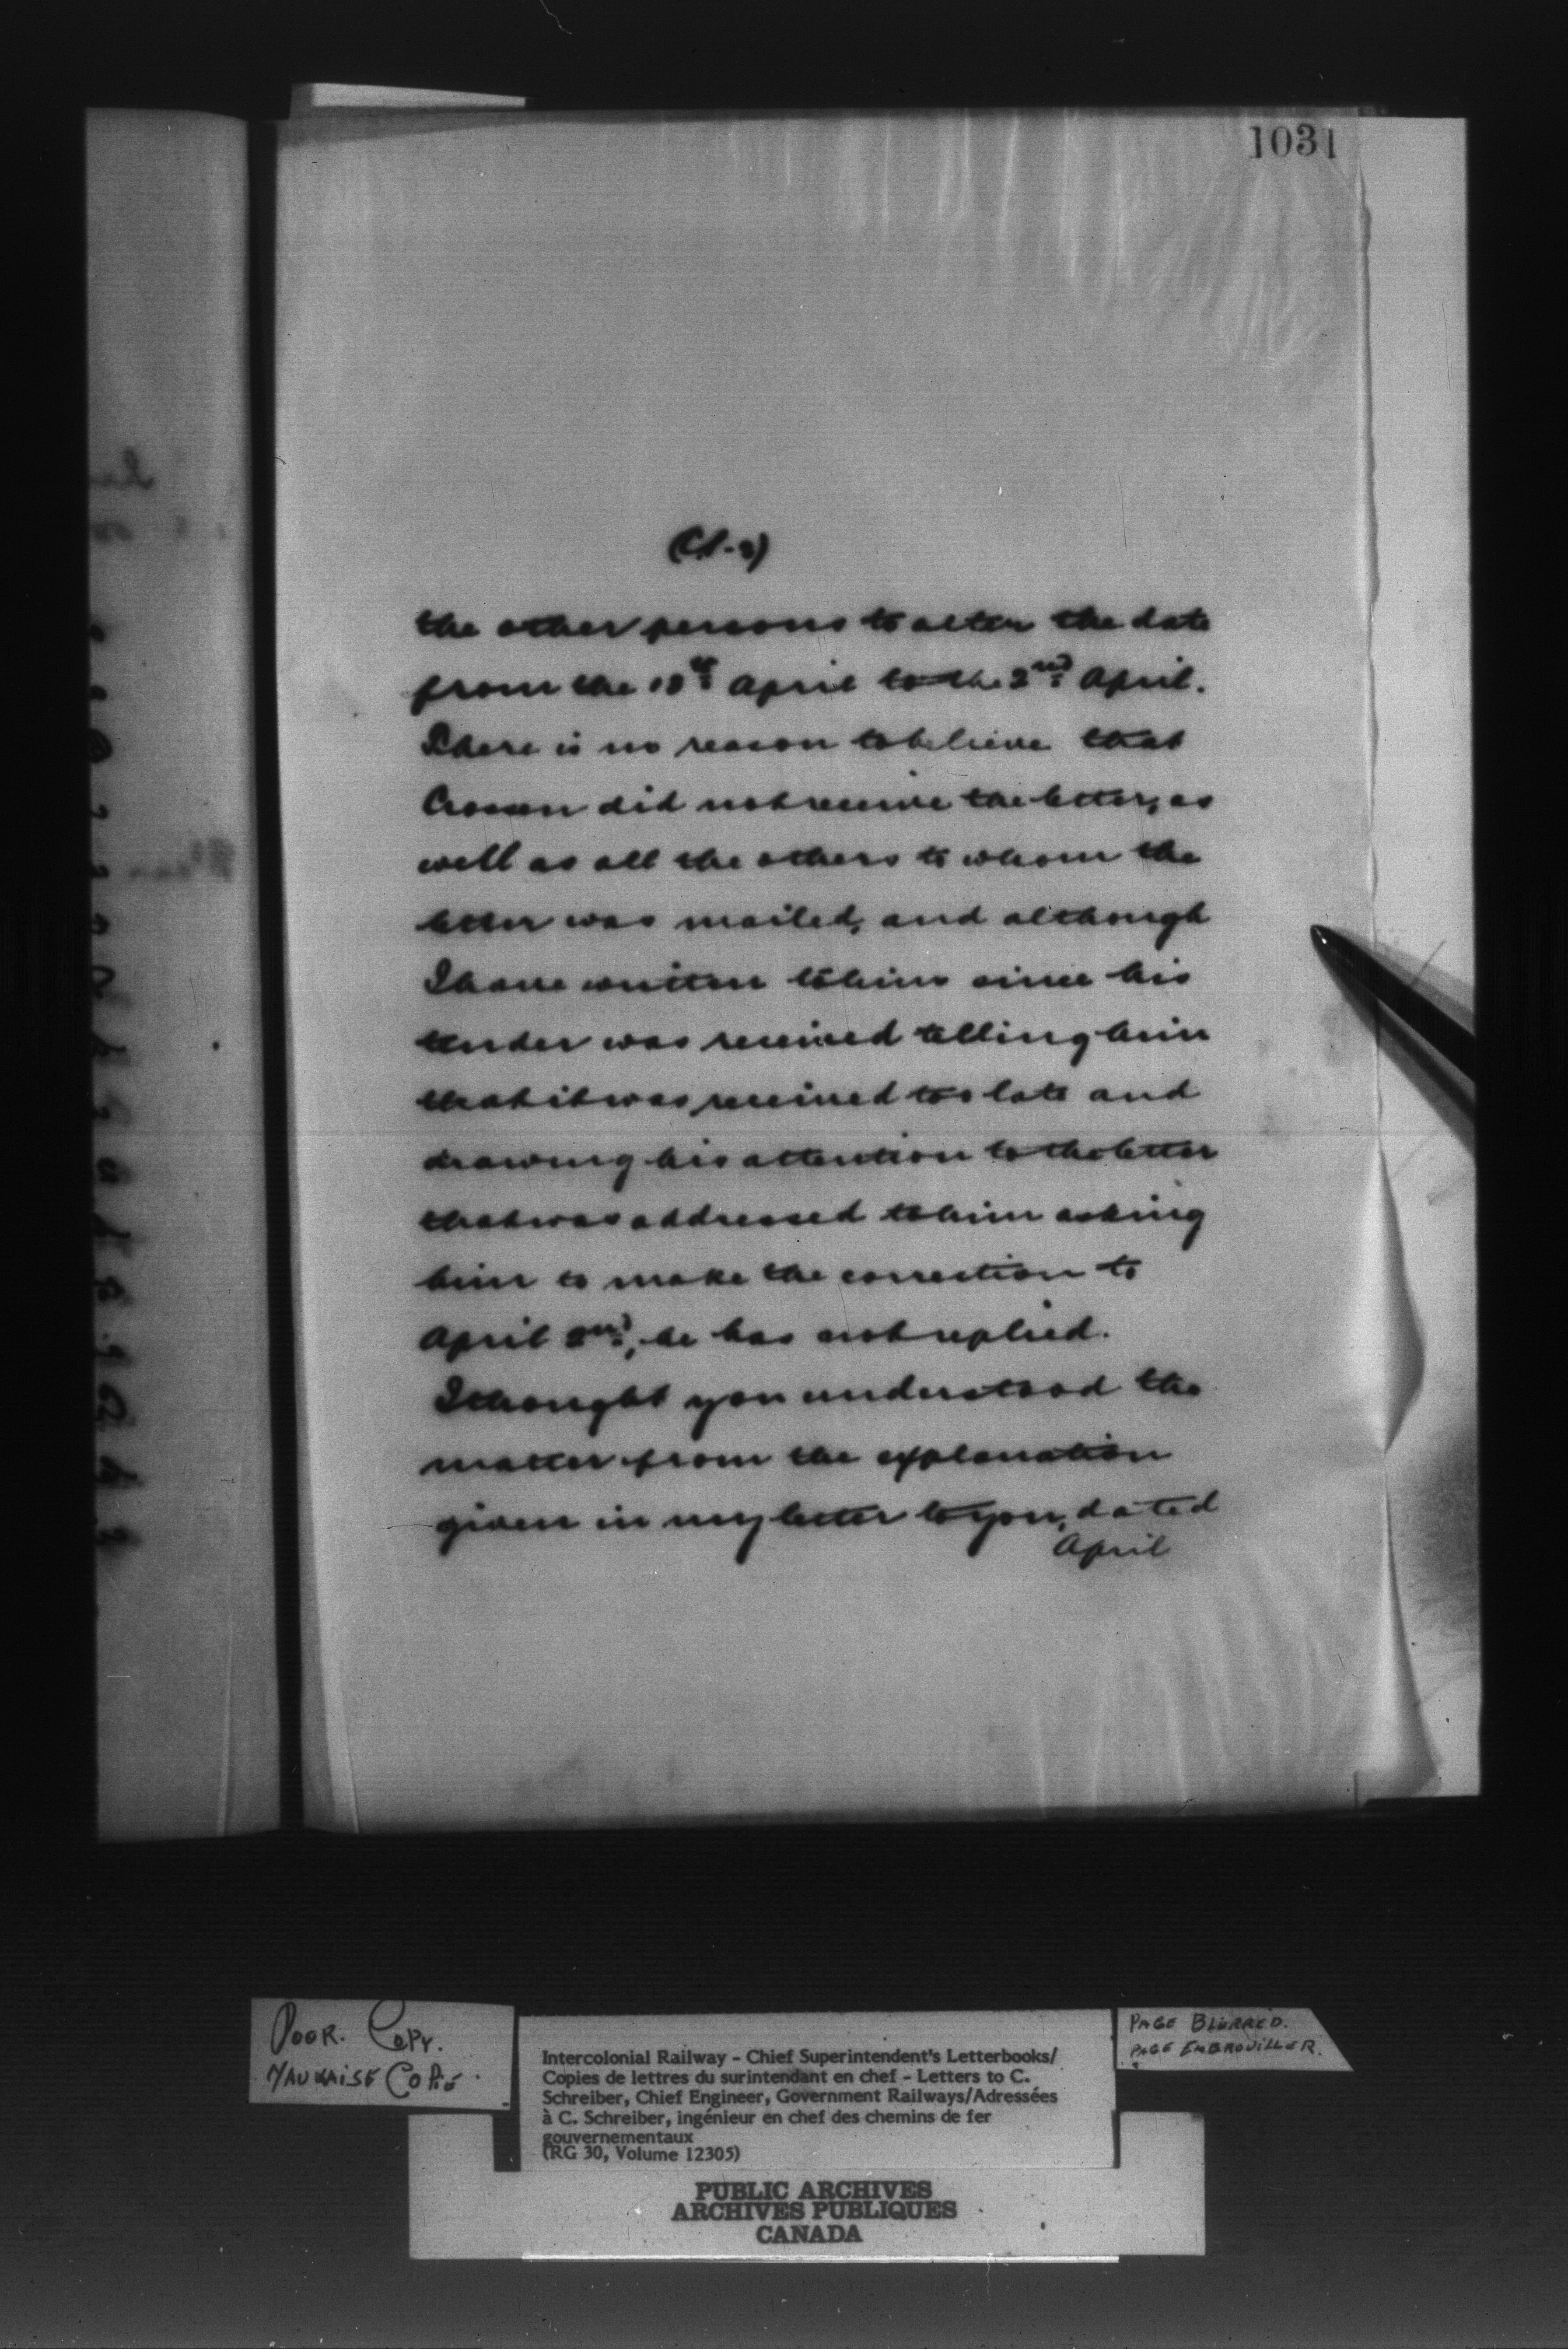 1031
the other persons to alter the date
from the April to the 2nd April.
There is no reason to believe that
Crossen did not receive the letter, as
well as all the others to whom the
letter was mailed, and although
I have written to him since his
tender was received telling him
that it was received too late and
drawing his attention to the letter
that was addressed to him asking
him to make the correction to
April 2nd, he has not replied.
I thought you understood the
matter from the explanation
given in my letter to you, dated
April
POOR. COPY.
MAUVAISE COPIE.
Intercolonial Railway - Chief Superintendent's Letterbooks/
Copies de lettres du surintendant en chef - Letters to C.
Schreiber, Chief Engineer, Government Railways/Adressées
à C. Schreiber, ingénieur en chef des chemins de fer
gouvernementaux
(RG 30, Volume 12305)
PAGE BLURRED.
PAGE EMBROUILLER.
PUBLIC ARCHIVES
ARCHIVES PUBLIQUES
CANADA